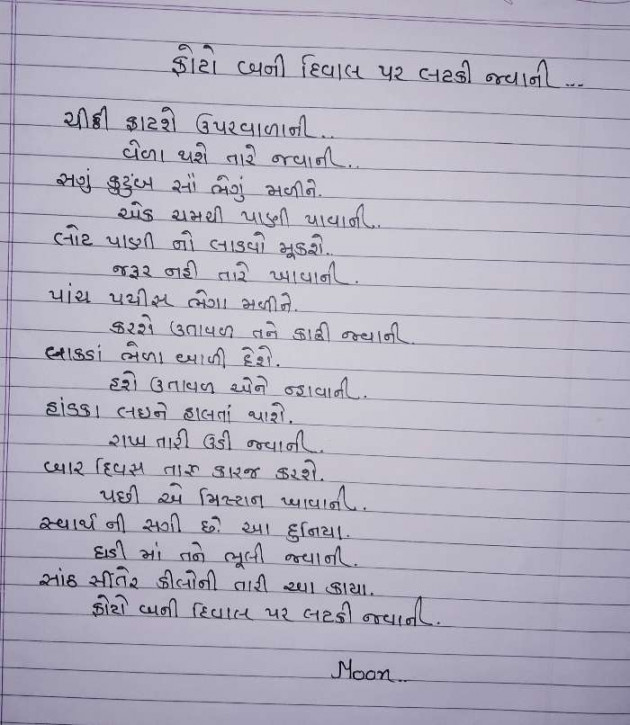 ફોટો બની દિવાલ પર લટકી જવાની...
ચીઠ્ઠી ફાટશે ઉપરવાળાની..
વેળા થશે તારે જવાની..
સગું કુટુંબ સૌ ભેગું મળીને.
એક ચમચી પાણી પાવાની..
લોટ પાણી નો લાડવો મૂકશે.
જરૂર નહી તારે ખાવાની.
પાંચ પચીસ ભેગા મળીને.
કરશે ઉતાવળ તને કાઢી જવાની.
લાકડાં ભેળા બાળી દેશે.
હશે ઉતાવળ એને ન્હાવાની.
હાંડકા લઇને હાલતાં થાશે.
રાખ તારી ઉડી જવાની.
બાર દિવસ તારુ કારજ કરશે.
પછી એ મિસ્ટાન ખાવાની.
સ્વાર્થ ની સગી છે આ દુનિયા.
ઘડી માં તને ભૂલી જવાની.
સાંઠ સીતેર કીલોની તારી આ કાયા.
ફોટો બની દિવાલ પર લટકી જવાની.
Moon..